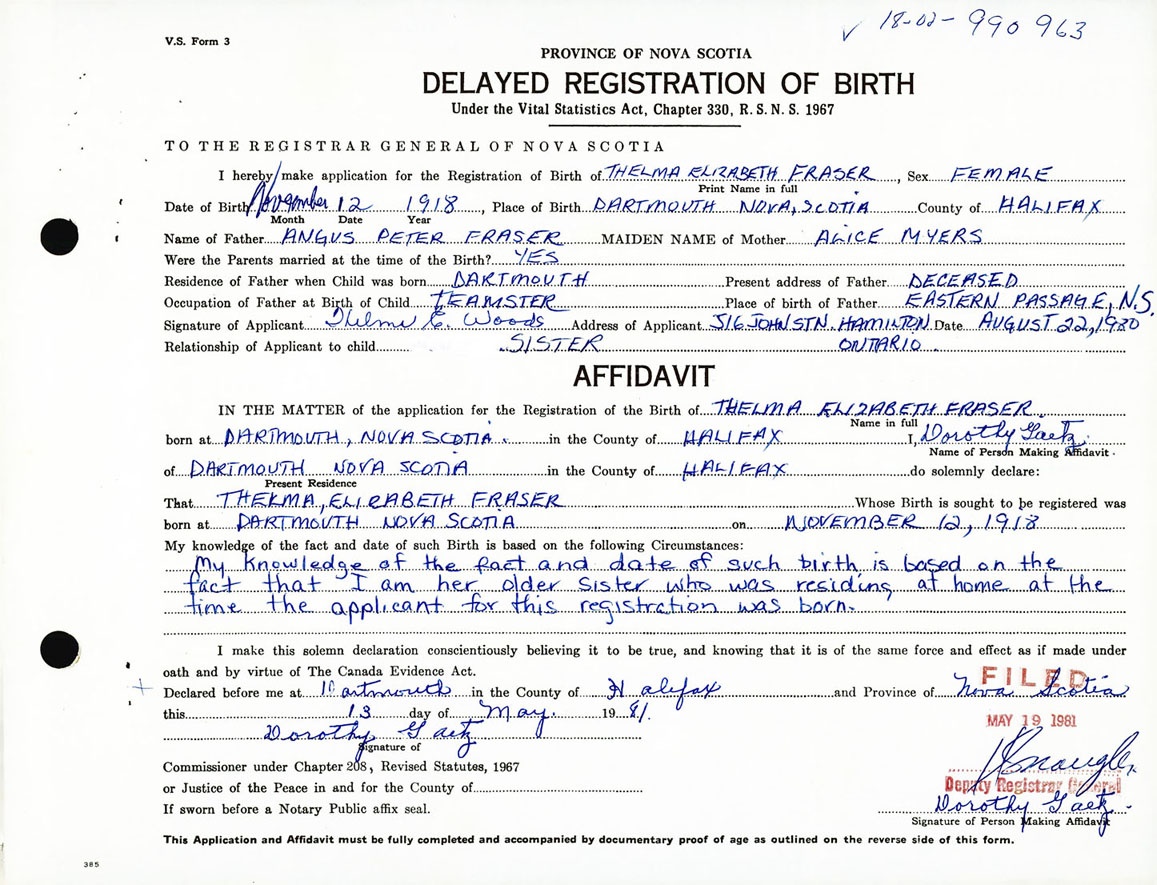 18-02-990 963
V.S. Form 3
PROVINCE OF NOVA SCOTIA
DELAYED REGISTRATION OF BIRTH
Under the Vital Statistics Act, Chapter 330, R. S. N. S. 1967
TO THE REGISTRAR GENERAL OF NOVA SCOTIA
I hereby make application for the Registration of Birth of THELMA ELIZABETH FRASER, Sex FEMALE
Print Name in full
Date of Birth November 12 1918, Place of Birth DARTMOUTH NOVA, SCOTIA County of HALIFAX
Month Date Year
Name of Father ANGUS PETER FRASER MAIDEN NAME of Mother ALICE MYERS
Were the Parents married at the time of the Birth? YES
Residence of Father when Child was born DARTMOUTH Present address of Father DECEASED
Occupation of Father at Birth of Child TEAMSTER Place of birth of Father EASTERN PASSAGE, N.S.
Signature of Applicant Thelma E. Woods Address of Applicant 316 JOHN ST N. HAMILTON Date AUGUST 22, 1980
Relationship of Applicant to child SISTER ONTARIO
AFFIDAVIT
IN THE MATTER of the application for the Registration of the Birth of THELMA ELIZABETH FRASER
Name in full
born at DARTMOUTH, NOVA SCOTIA in the County of HALIFAX I, Dorothy Gaetz
Name of Person Making Affidavit
of DARTMOUTH NOVA SCOTIA in the County of HALIFAX do solemnly declare:
Present Residence
That THELMA, ELIZABETH FRASER Whose Birth is sought to be registered was
born at DARTMOUTH NOVA SCOTIA on NOVEMBER 12, 1918
My knowledge of the fact and date of such Birth is based on the following Circumstances:
My knowledge of the fact and date of such birth is based on the
fact that I am her older sister who was residing at home at the
time the applicant for this registration was born.
I make this solemn declaration conscientiously believing it to be true, and knowing that it is of the same force and effect as if made under
oath and by virtue of The Canada Evidence Act.
FILED
Declared before me at Dartmouth in the County of Halifax and Province of Nova Scotia
this 13 day of May 1981.
MAY 19 1981
Dorothy Gaetz
Signature of
Commissioner under Chapter 208, Revised Statutes, 1967
Deputy Registrar General
or Justice of the Peace in and for the County of
Dorothy Gaetz
If sworn before a Notary Public affix seal.
Signature of Person Making Affidavit
This Application and Affidavit must be fully completed and accompanied by documentary proof of age as outlined on the reverse side of this form.
385